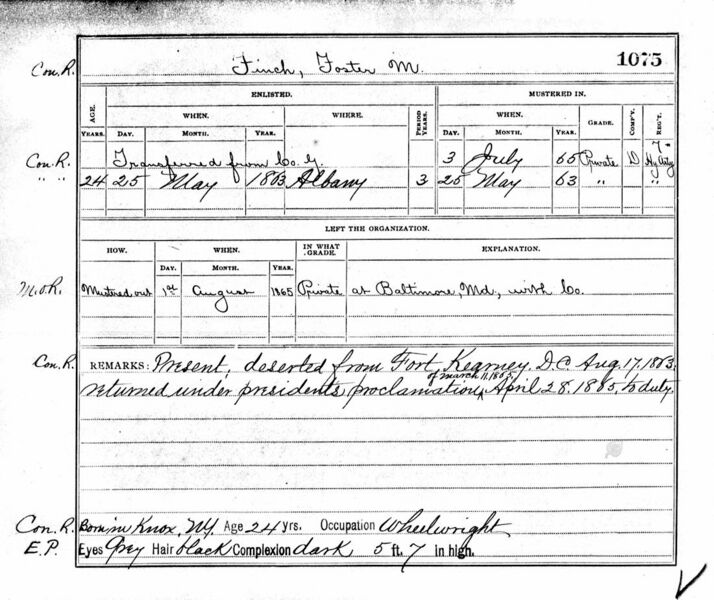 Con. R. Finch, Foster M. 1075
AGE. ENLISTED. MUSTERED IN.
YEARS. WHEN. WHERE. PERIOD YEARS. WHEN. GRADE. COMP'Y. REG'T.
DAY. MONTH. YEAR. DAY. MONTH. YEAR.
Con. R. Transferred from Co. G. 3 July 65 Private D 7" Hy Arty
" " 24 25 May 1863 Albany 3 25 May 63 " "
LEFT THE ORGANIZATION.
HOW. WHEN. IN WHAT GRADE. EXPLANATION.
DAY. MONTH. YEAR.
M.O.R. Mustered out 1st August 1865 Private at Baltimore, Md, with Co.
Con. R. REMARKS: Present, deserted from Fort Kearney D.C. Aug. 17, 1863,
of March 11. 1865
returned under presidents proclamation, April 28. 1865, to duty.
Con. R. Born in Knox, NY. Age 24 yrs. Occupation Wheelwright
E.P. Eyes Grey Hair black Complexion dark 5 ft. 7 in high.